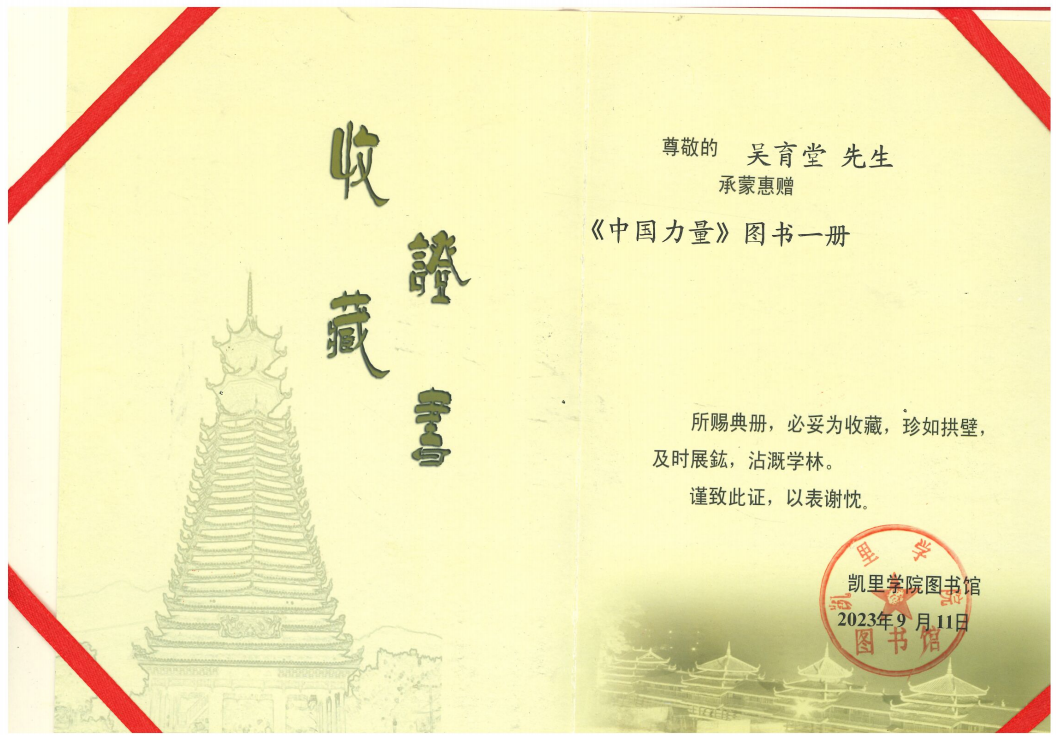 收藏
證書
尊敬的 吴育堂 先生
承蒙惠赠
《中国力量》图书一册
所赐典册，必妥为收藏，珍如拱壁，
及时展鈜，沾溉学林。
谨致此证，以表谢忱。
凯里学院图书馆
2023年9月11日
凯里学院
图书馆